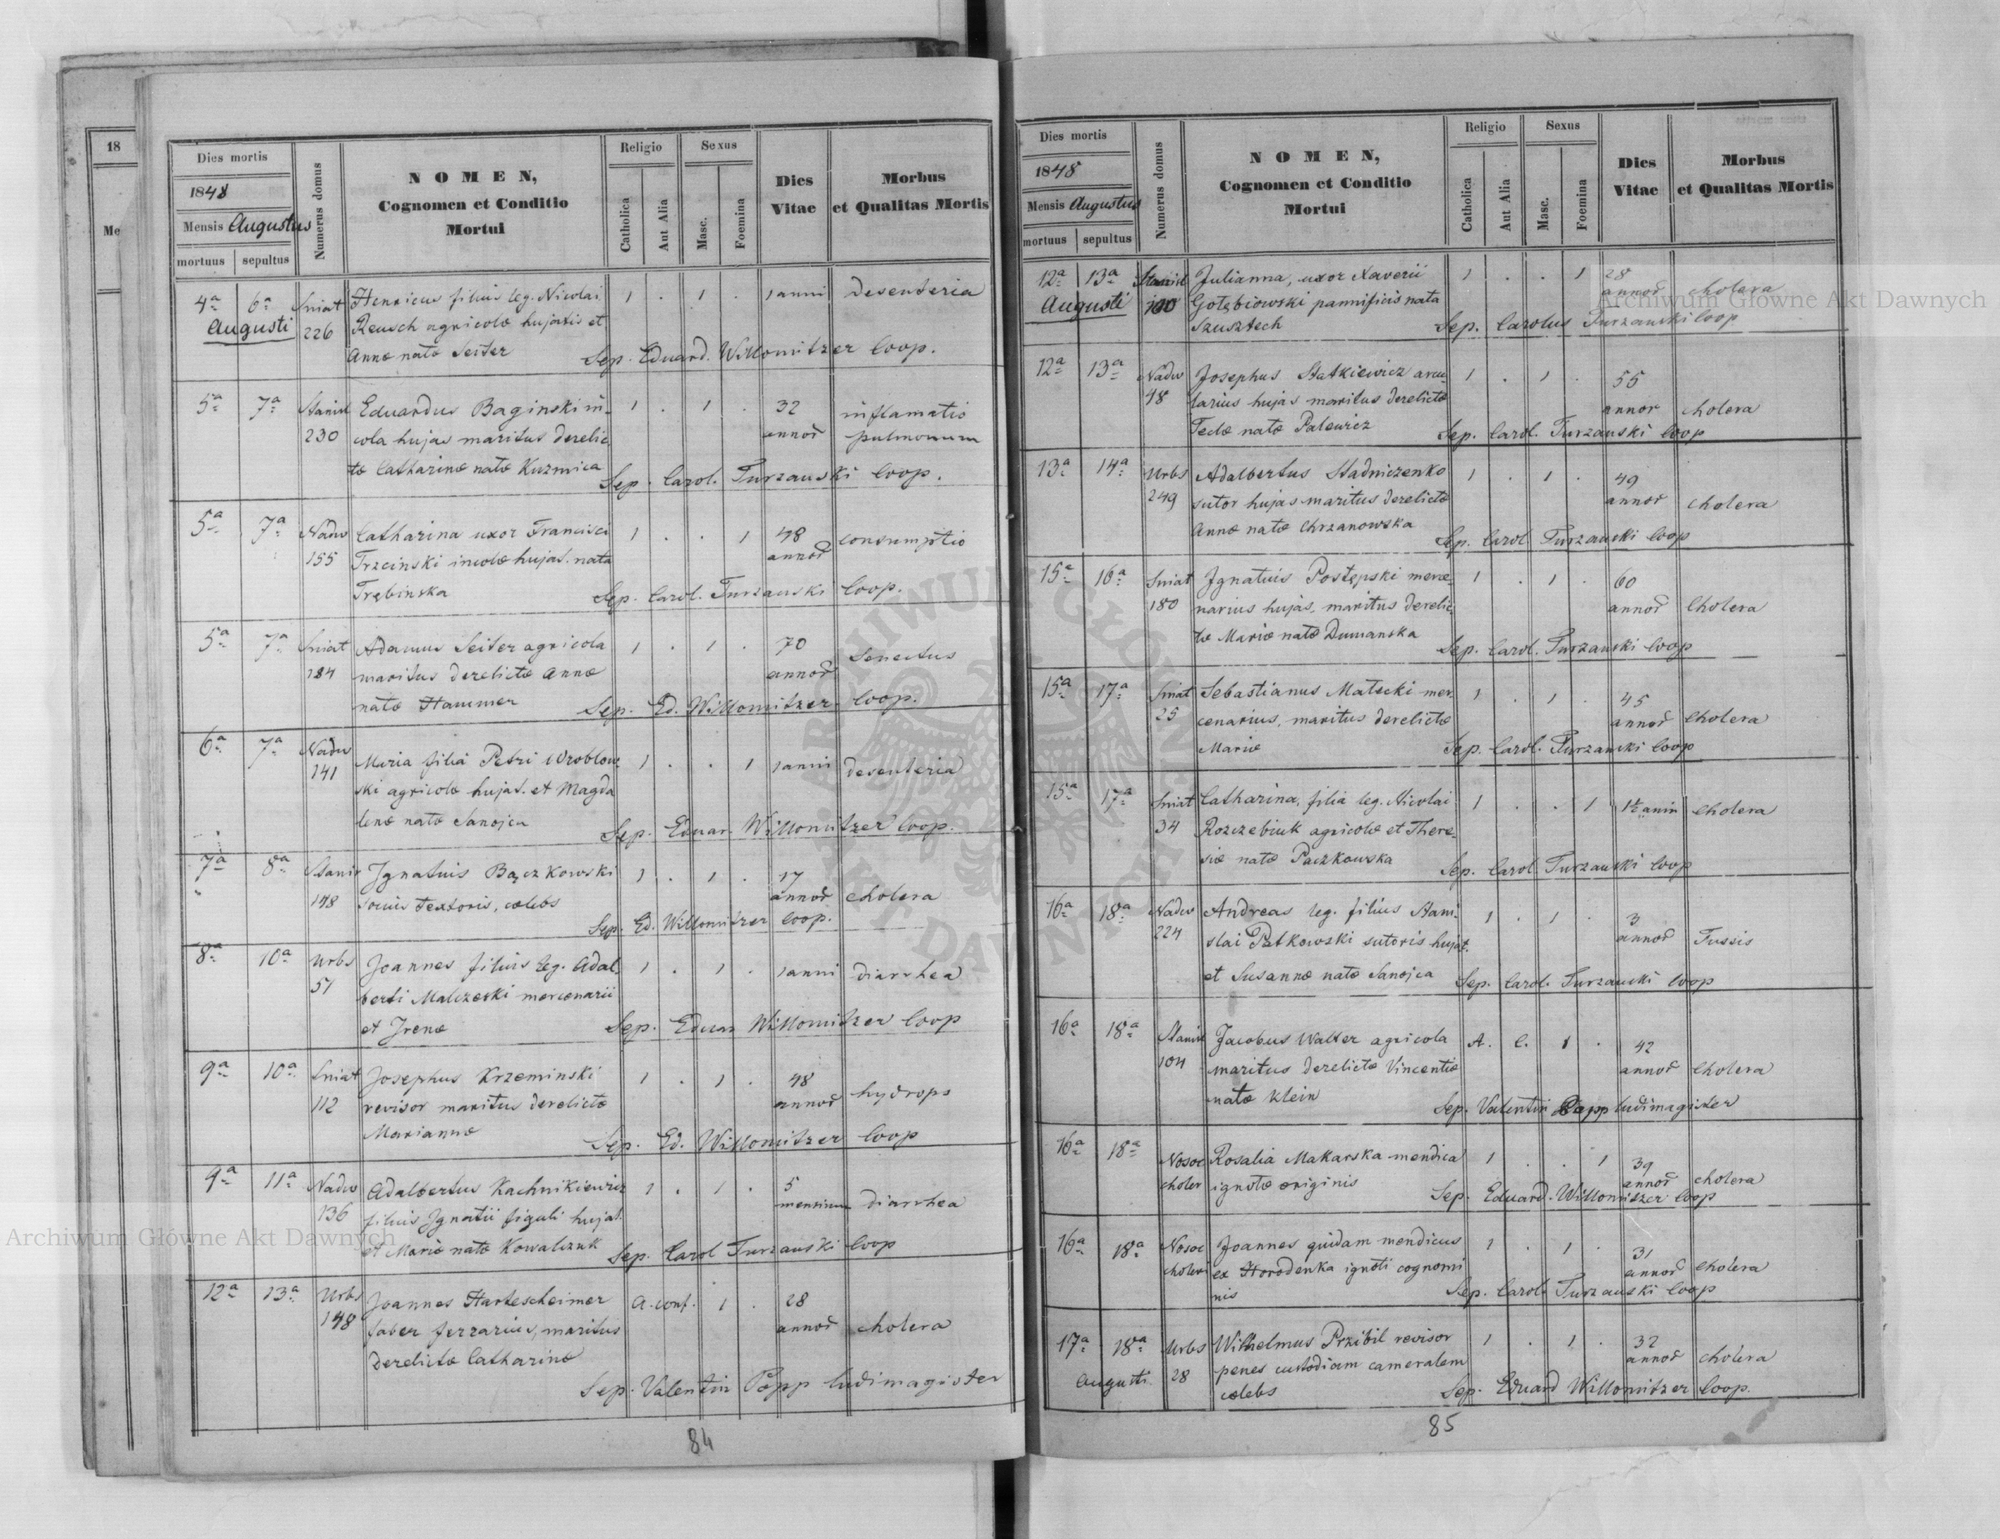 18
Me
Dies mortis
1848
Mensis Augustus
mortuus sepultus
Numerus domus
NOMEN,
Cognomen et Conditio
Mortui
Religio
Catholica
Aut Alia
Sexus
Masc.
Foemina
Dies
Vitae
Morbus
et Qualitas Mortis
4a 6a Sniat Henricus filius leg. Nicolai 1 . 1 . 1 anni desenteria
Augusti 226 Reusch agricolæ hujatis et
Annæ natæ Seiter Sep. Eduard. Willomitzer Coop.
5a 7a Stanisl Eduardus Baginski in- 1 . 1 . 32 inflamatio
230 cola hujas maritus derelic annor pulmonum
tæ Catharinæ natæ Kuzmica Sep. Carol. Turzanski Coop.
5a 7a Nadw Catharina uxor Francisci 1 . . 1 48 consumptio
155 Trzcinski incolæ hujat. nata annor
Trębinska Sep. Carol. Turzanski Coop.
5a 7a Sniat Adamus Seiter agricola 1 . 1 . 70 Senectus
184 maritus derelictæ Annæ annor
natæ Hammer Sep. Ed. Willomitzer Coop.
6a 7a Nadw Maria filia Petri Wroblow 1 . . 1 1 anni desenteria
141 ski agricolæ hujat. et Magda
lenæ natæ Sanojca Sep. Eduar. Willomitzer Coop.
7a 8a Stanis Ignatius Bączkowski 1 . 1 . 17 cholera
148 socius Textoris, cælebs annor
Sep. Ed. Willomitzer Coop.
8a 10a Urbs Joannes filius leg. Adal- 1 . 1 . 1 anni diarrhea
57 berti Malczeski mercenarii
et Irenæ Sep. Eduar Willomitzer Coop
9a 10a Sniat Josephus Krzeminski 1 . 1 . 48 hydrops
112 revisor maritus derelictæ annor
Mariannæ Sep. Ed. Willomitzer Coop
9a 11a Nadw Adalbertus Kachnikiewicz 1 . 1 . 5 diarrhea
136 filius Ignatii figuli hujat. mensium
et Mariæ natæ Kowalczuk Sep. Carol Turzanski Coop
12a 13a Urbs Joannes Hartescheimer A. conf. 1 . 28
148 faber ferrarius, maritus annor cholera
derelictæ Catharinæ
Sep. Valentin Papp ludimagister
84
Dies mortis
1848
Mensis Augustus
mortuus sepultus
Numerus domus
NOMEN,
Cognomen et Conditio
Mortui
Religio
Catholica
Aut Alia
Sexus
Masc.
Foemina
Dies
Vitae
Morbus
et Qualitas Mortis
12a 13a Stanisl Julianna, uxor Xaverii 1 . . 1 28 cholera
Augusti Gołębiowski pannificis nata annor
Szusztech Sep. Carolus Turzanski Coop
12a 13a Nadw Josephus Statkiewicz arcu- 1 . 1 . 55
48 larius hujas maritus derelictæ annor cholera
Teclæ natæ Palewicz Sep. Carol. Turzanski Coop
13a 14a Urbs Adalbertus Stadniczenko 1 . 1 . 49
249 sutor hujas maritus derelictæ annor cholera
Annæ natæ Chrzanowska Sep. Carol. Turzanski Coop
15a 16a Sniat Ignatius Postępski merce 1 . 1 . 60
180 narius hujas, maritus derelic annor Cholera
tæ Mariæ natæ Dumanska Sep. Carol. Turzanski Coop
15a 17a Sniat Sebastianus Małecki mer 1 . 1 . 45
25 cenarius, maritus derelictæ annor Cholera
Mariæ Sep. Carol. Turzanski Coop
15a 17a Sniat Catharina, filia leg. Nicolai 1 . . 1 1½ anni Cholera
34 Rozczebiuk agricolæ et There-
siæ natæ Paczkowska Sep. Carol Turzanski Coop
16a 18a Nadw Andreas leg. filius Stani- 1 . 1 . 3
224 slai Patkowski sutoris hujat. annor Tussis
et Susannæ natæ Sanojca Sep. Carol. Turzanski Coop
16a 18a Stanisl Jacobus Walter agricola A. C. 1 . 42
104 maritus derelictæ Vincentiæ annor Cholera
natæ Klein Sep. Valentin Papp ludimagister
16a 18a Nosoc Rosalia Makarska mendica 1 . . 1 39
choler ignotæ originis annor cholera
Sep. Eduard. Willomitzer Coop
16a 18a Nosoc Joannes quidam mendicus 1 . 1 . 31
choleri ex Horodenka ignoti cognomi annor Cholera
nis Sep. Carol. Turzanski Coop
17a 18a Urbs Wilhelmus Przibil revisor 1 . 1 . 32
Augusti. 28 penes custodiam cameralem annor cholera
cælebs Sep. Eduard Willomitzer Coop.
85
Archiwum Główne Akt Dawnych
Archiwum Główne Akt Dawnych
ARCHIWUM GŁÓWNE AKT DAWNYCH